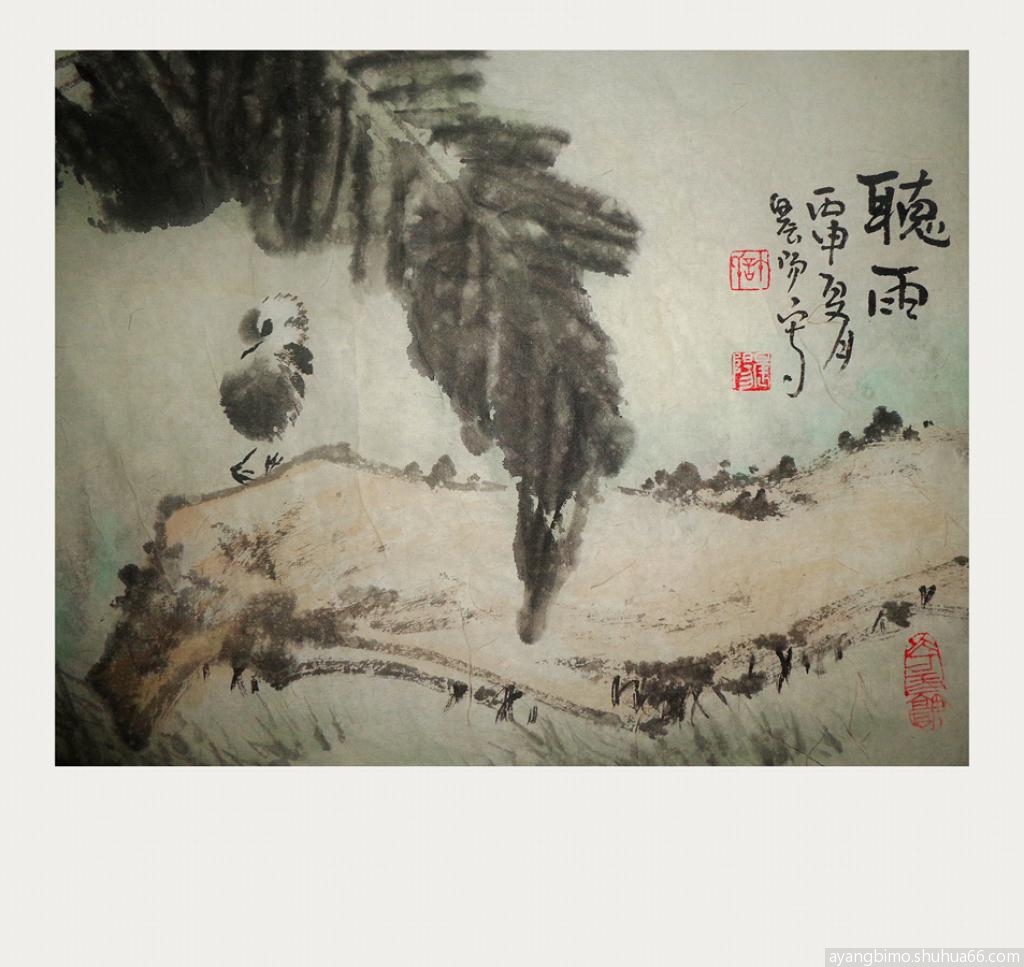 聽雨
丙申夏月
晨陽寫
ayangbimo.shuhua66.com